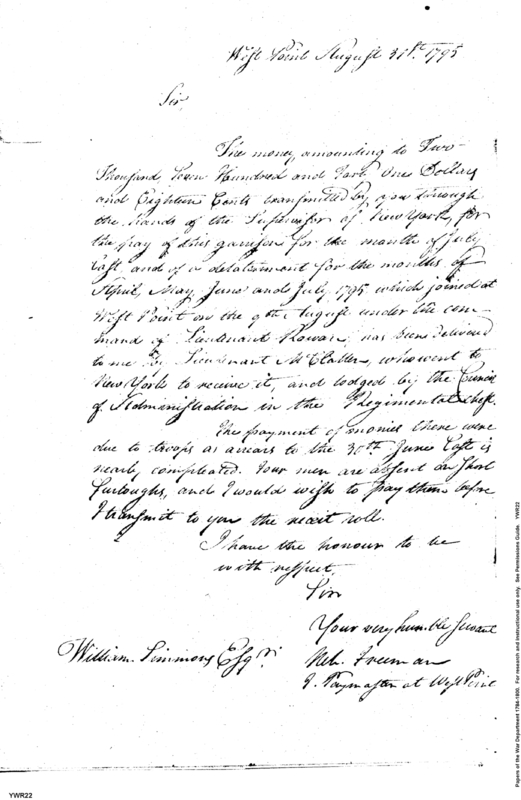 West Point August 31st. 1795
Sir,
The money, amounting to Two
Thousand, Seven Hundred and Forty One Dollars
and Eighteen Cents transmitted by you through
the hands of the Supervisor of New York, for
the pay of this garrison for the month of July
last, and of a detatchment for the months of
April, May, June and July 1795 which joined at
West Point on the 9th August under the com-
mand of Lieutenant Rowan, has been delivered
to me by Lieutenant McClallen, who went to
New York to receive it, and lodged by the Council
of Administration in the Regimental Chest.
The payment of monies there were
due to troops as arrears to the 30th June last is
nearly compleated. Four men are absent on short
furloughs, and I would wish to pay them before
I transmit to you the receit roll.
I have the honour to be
with respect.
Sir
Your very humble Servant
William Simmons Esqr.
Neh. Freeman
Paymaster at West Point
YWR22
Papers of the War Department 1784-1800. For research and instructional use only. See Permissions Guide. YWR22